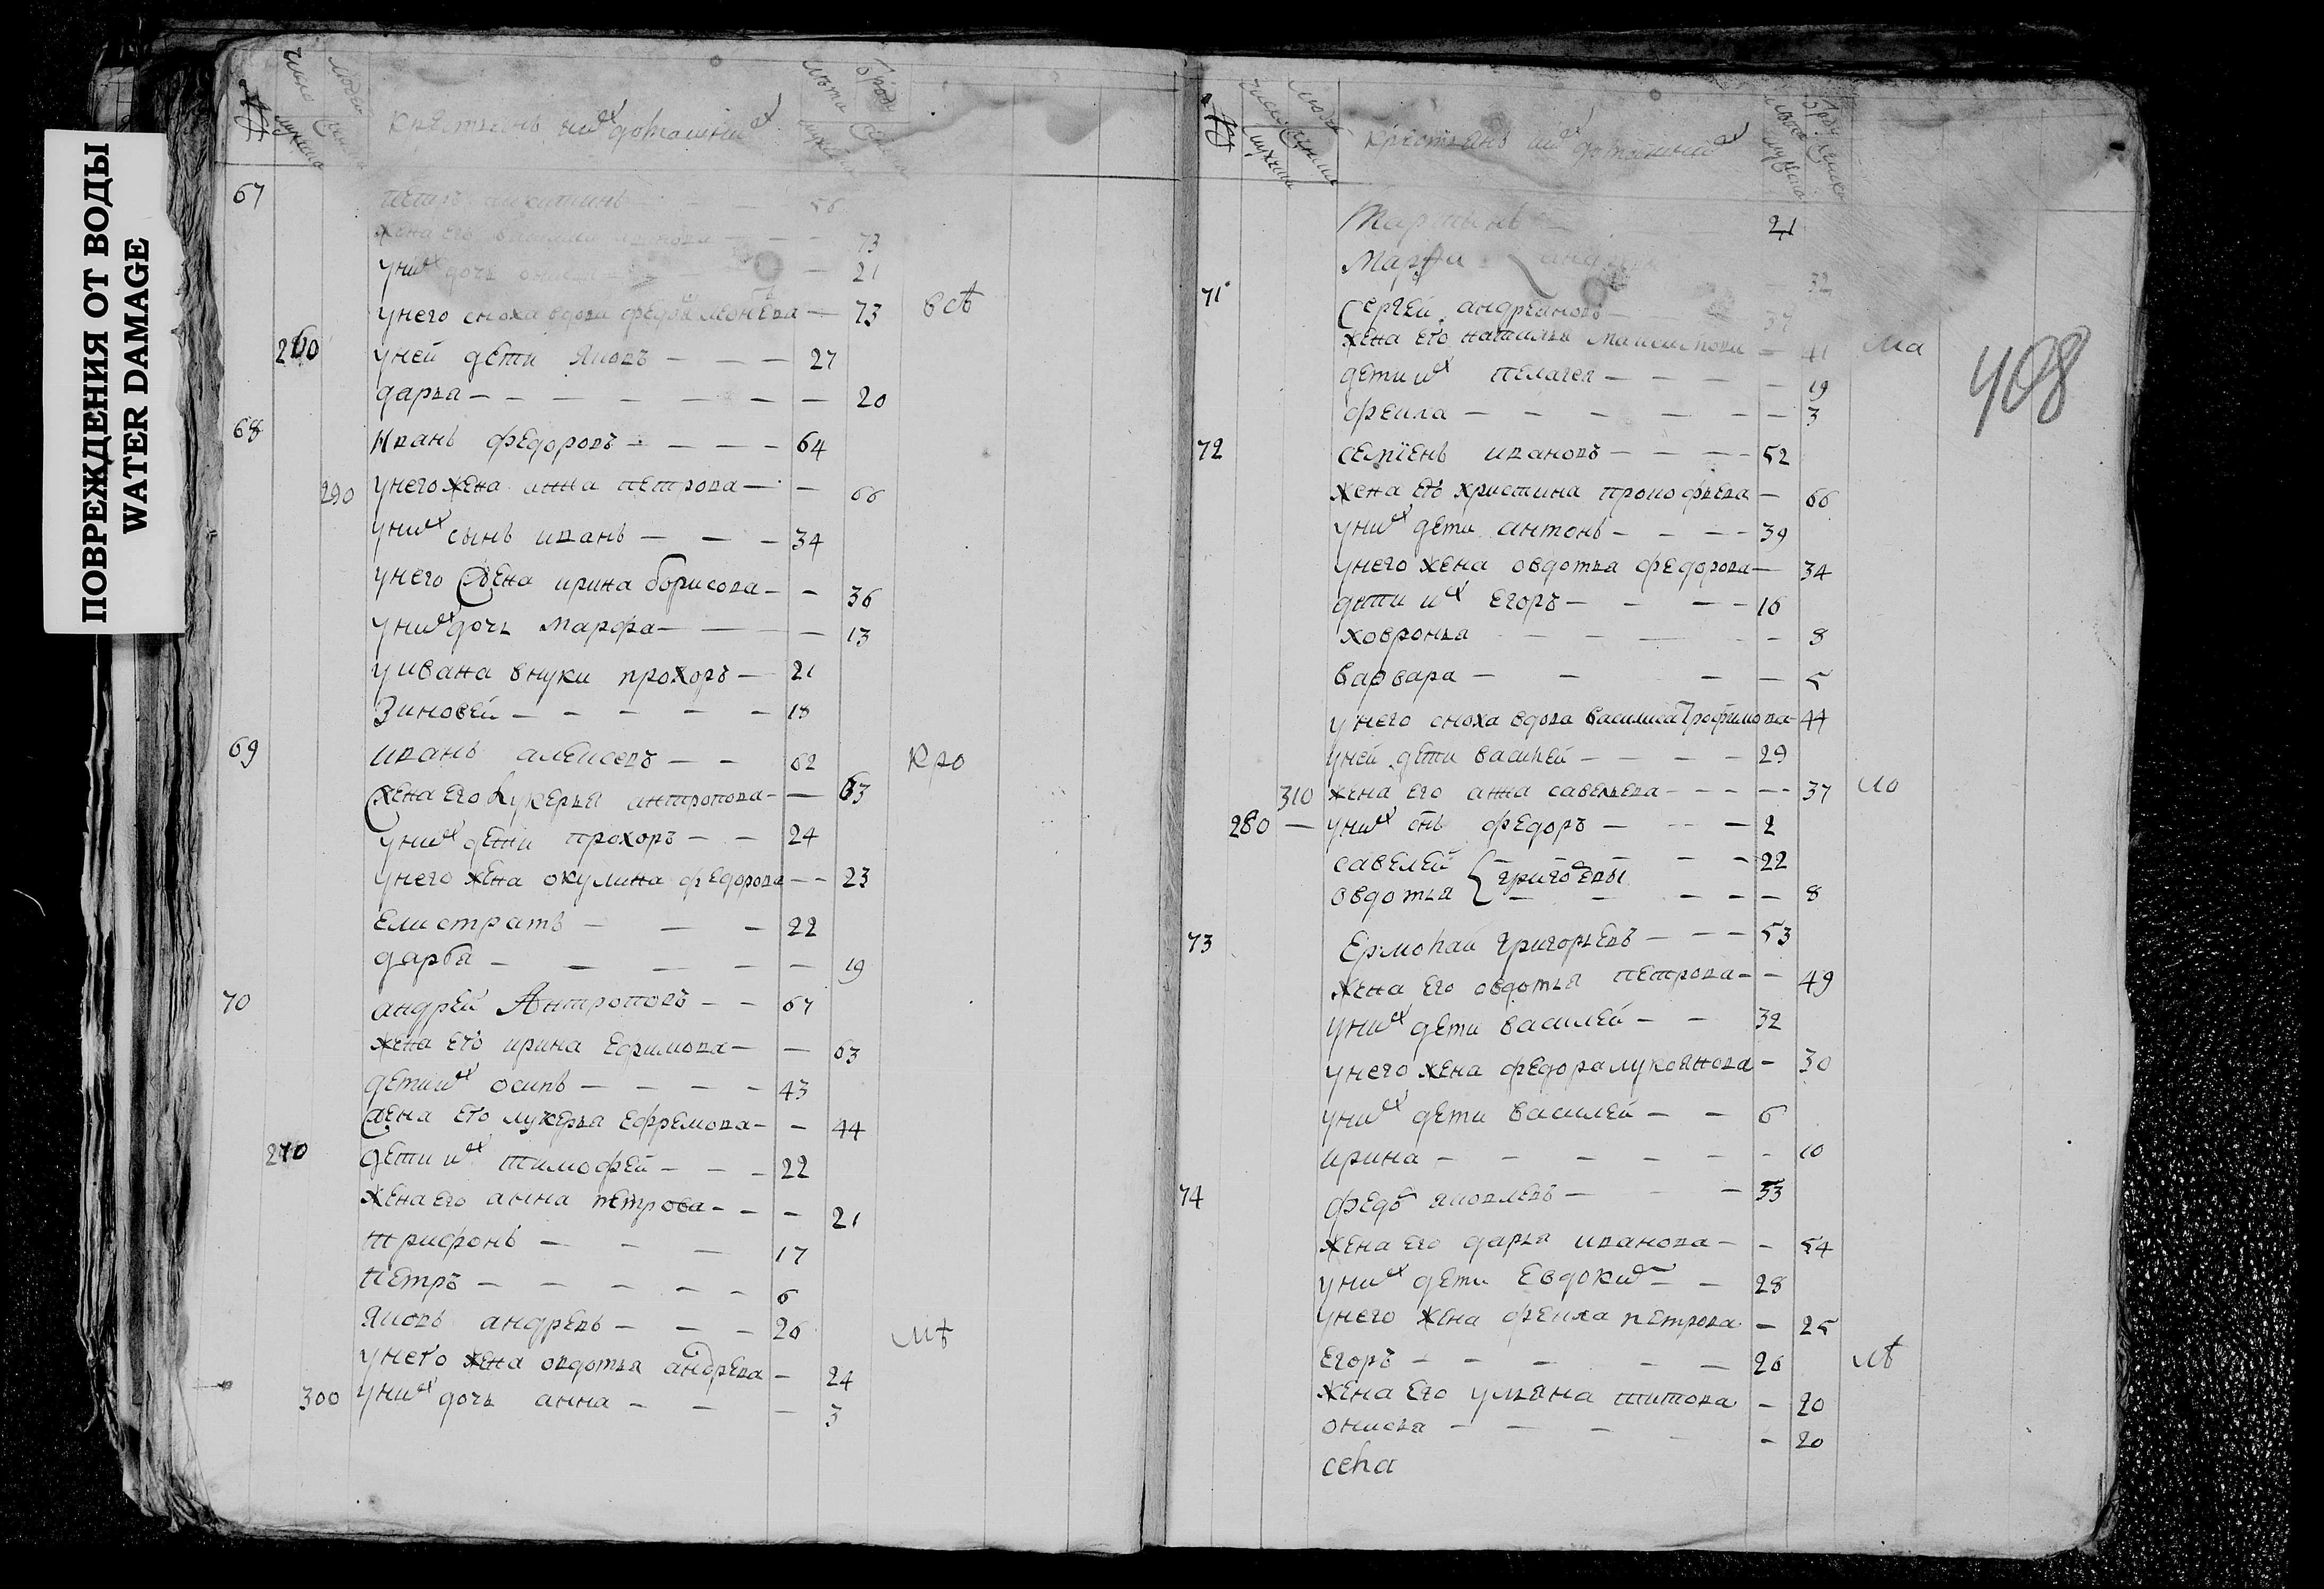 ПОВРЕЖДЕНИЯ ОТ ВОДЫ
WATER DAMAGE
число людей лѣта
мужеска женска мужеска женска
крестьянъ и их домашних
67 петръ никитинъ — — — 56
жена его — — — 73
у них дочь — 21
у него сноха вдова федѡ леонтьева — 73 всѣ
260 у ней дети яковъ — — — 27
дарья — — — — — — — 20
68 Иванъ федоровъ — — — — 64
290 у него жена анна петрова — — 66
у них сынъ иванъ — — — 34
у него жена ирина борисова — — 36
у них дочь марфа — — — 13
у ивана внуки прохоръ — 21
Зиновей — — — — — 18
69 иванъ алексеевъ — — 62 кро
жена его лукерья антропова — — 63
у них дети прохоръ — — 24
у него жена окулина федорова — — 23
елистратъ — — — 22
дарья — — — — — 19
70 андрей Антроповъ — — 67
жена его ирина ефимова — — 63
дети их осипъ — — — — 43
жена его лукерья ефремова — — 44
270 дети их тимофей — — — 22
жена его анна петрова — — — 21
трифонъ — — — 17
петръ — — — — — 6
Яковъ андревъ — — — 26 мѣ
у него жена овдотья андрева — 24
300 у них дочь анна — — — 3
число людей
мужеска женска
крестьянъ и их домашних
408
Мартынъ — 21
Марфа — 32
71 Сергей андреяновъ — 37
жена его наталья максимова — 41 ма
дети их пелагея — — — — 19
фекла — — — — — — 3
72 семіенъ ивановъ — — — — 52
жена его христина прокофьева — 66
у них дети антонъ — — — — 39
у него жена овдотья федорова — 34
дети их егоръ — — — — 16
ховронья — — — — — 8
варвара — — — — 5
у него сноха вдова василиса Трофимова — 44
у ней дети василей — — — — 29
310 жена его анна савельева — — — — 37 мо
280 — у них снъ федоръ — — — 2
савелей — — — — 22
овдотья { григоревы — — — — 8
73 Ермолай григорьевъ — — — 53
жена его овдотья петрова — — 49
у них дети василей — — 32
у него жена федора лукоянова — 30
у них дети василей — — 6
ирина — — — — — — 10
74 федѡ яковлевъ — — — 53
жена его дарья иванова — — 54
у них дети Евдоким — — 28
у него жена фекла петрова — 25
егоръ — — — — — 26 мѣ
жена его ульяна титова — 20
онисья — — — — — 20
села